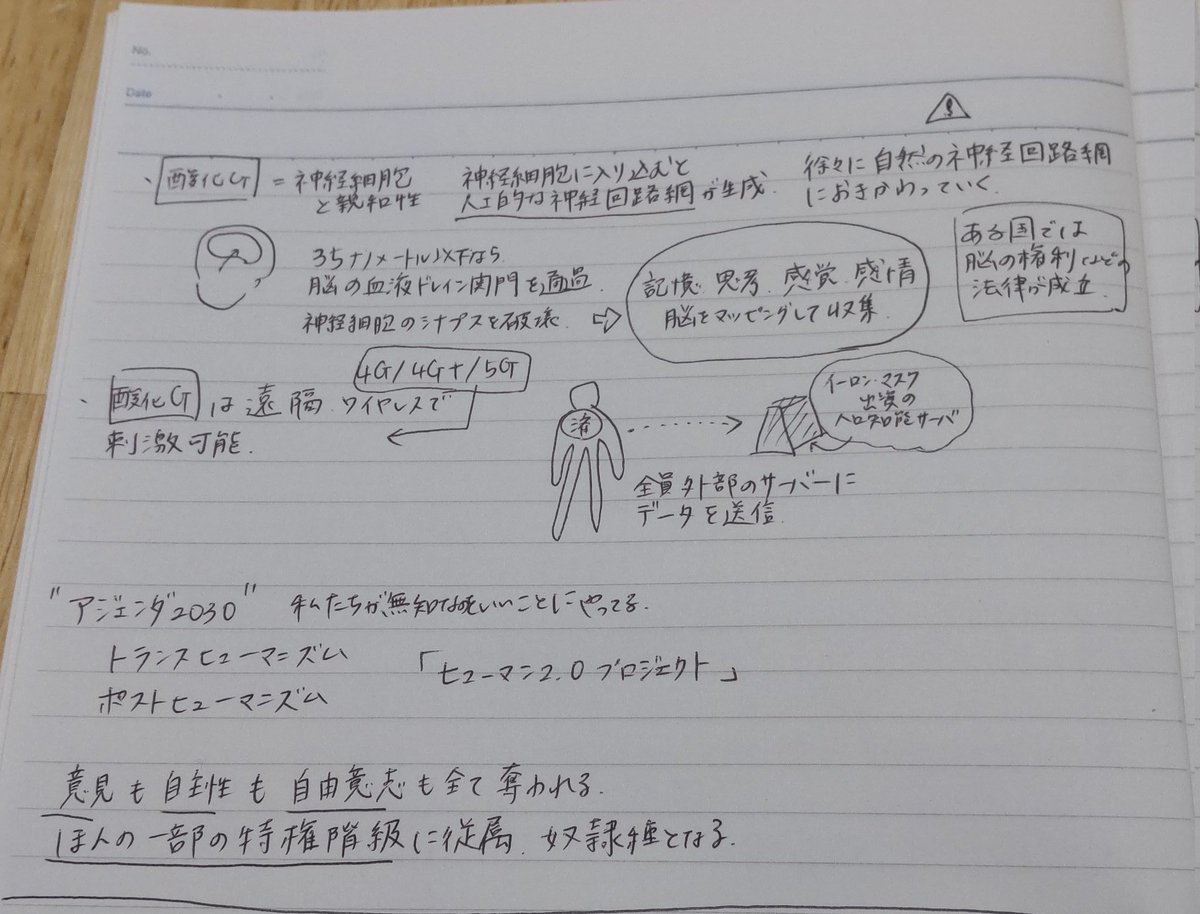 No.
Date
、酸化G = 神経細胞
と親和性
神経細胞に入り込むと
人工的な神経回路網が生成.
徐々に自然の神経回路網
におきかわっていく.
35ナノメートル以下なら
脳の血液ドレイン関門を通過
神経細胞のシナプスを破壊.
⇨
記憶 思考. 感覚. 感情
脳をマッピングして収集.
ある国では
脳の権利などの
法律が成立.
4G/4G+/5G
、酸化G は遠隔. ワイヤレスで
刺激可能.
済
イーロン・マスク
出資の
人口知能サーバ
全員外部のサーバーに
データを送信.
"アジェンダ2030" 私たちが無知なのをいいことにやってる.
トランスヒューマニズム
ポストヒューマニズム
「ヒューマン2.0 プロジェクト」
意見も自主性も自由意志も全て奪われる.
ほんの一部の特権階級に従属. 奴隷種となる.